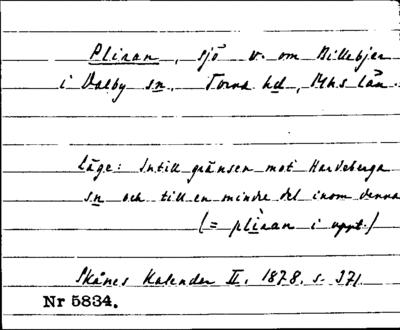 Pliran, sjö v. om Billebjer
i Dalby sn, Torna hd, Mhs län.
Läge: Intill gränsen mot Hardeberga
sn och till en mindre del inom denna
(= pliran i uppt.)
Skånes Kalender II. 1878. s. 371
Nr 5834.